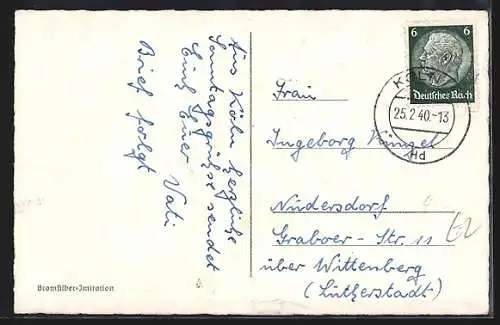 Aus Köln herzliche
Sonntagsgrüße sendet
Euch Euer Vati
Brief folgt
Bromsilber-Imitation
6 6
Deutsches Reich
KÖLN
25.2.40.-13
Frau
Ingeborg
Nudersdorf
Graboer-Str. 11
über Wittenberg
(Lutherstadt)